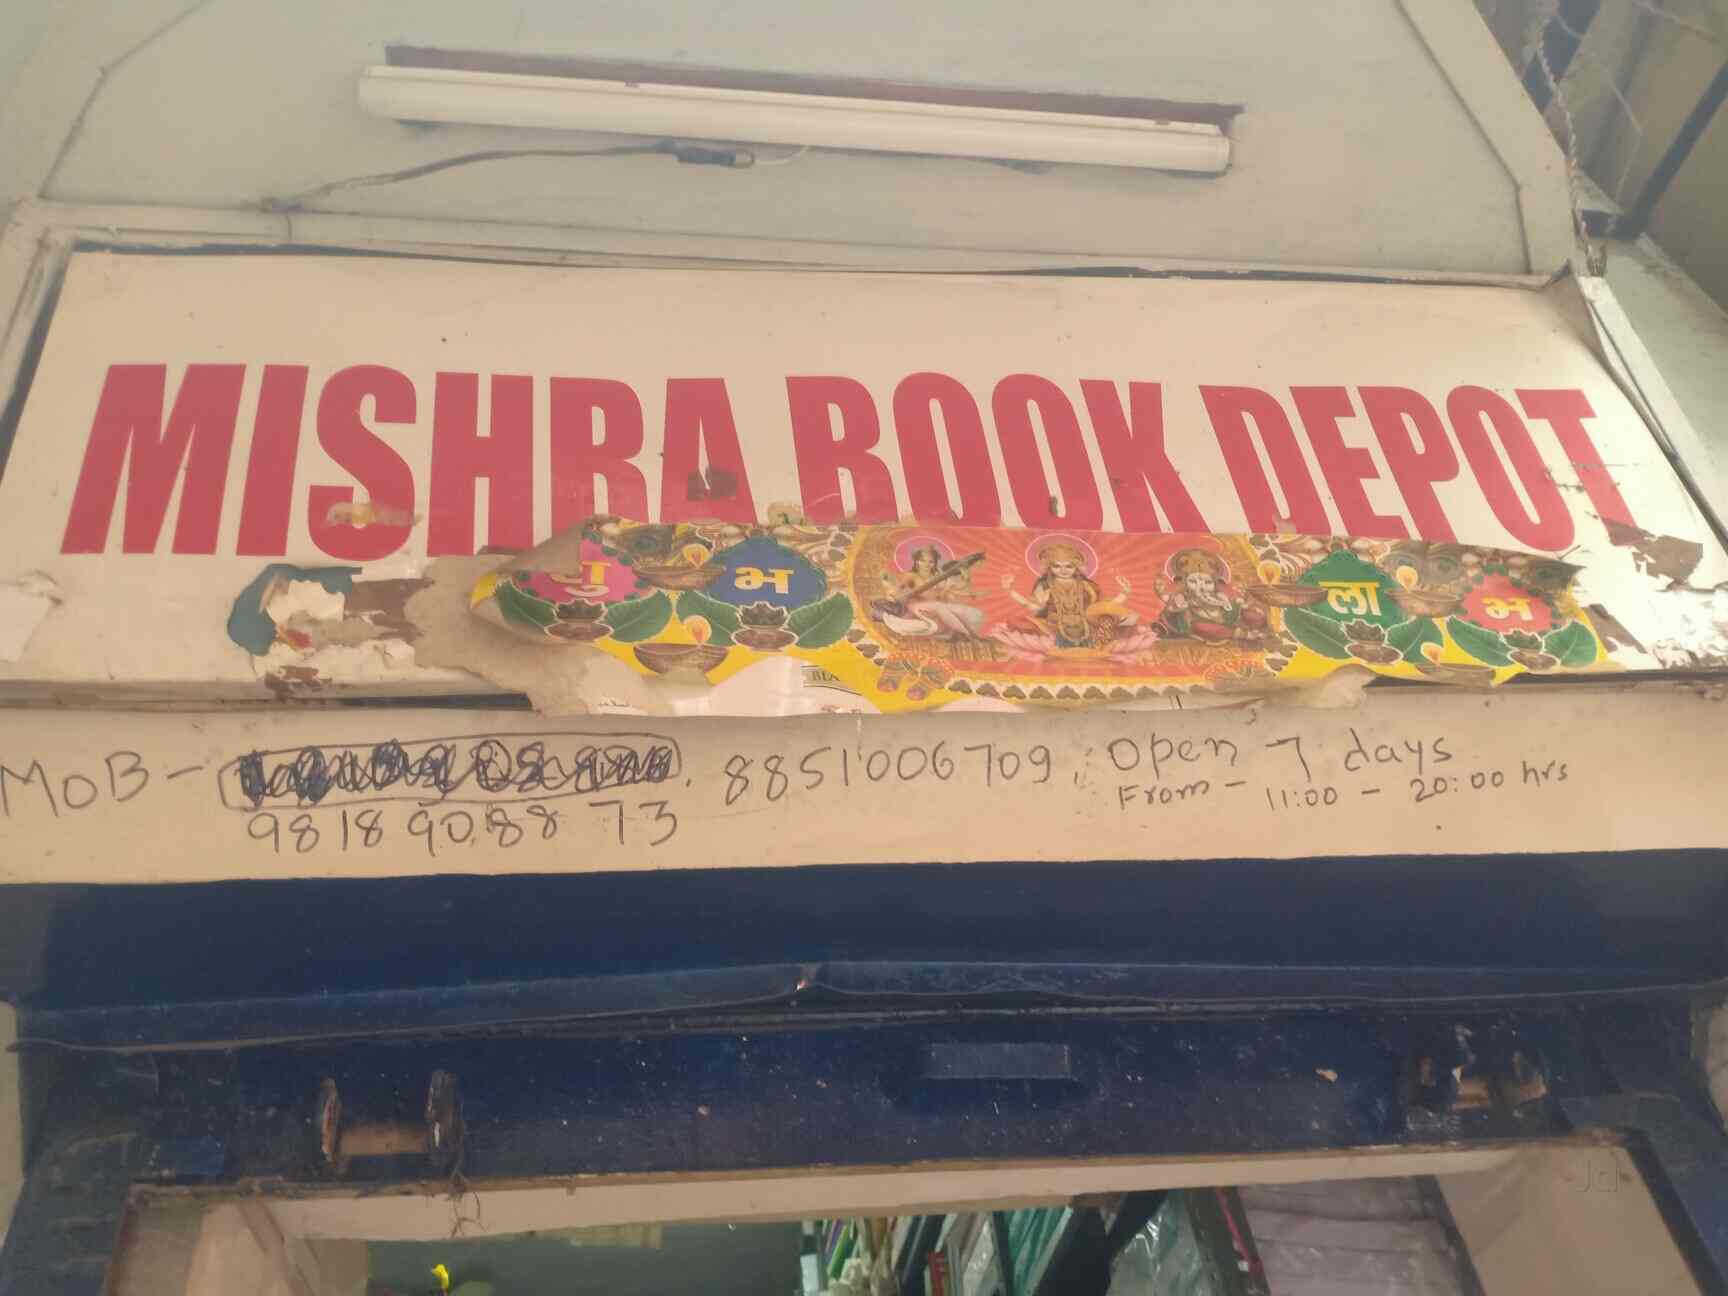 MISHRA BOOK DEPOT
शुभ लाभ
MOB - 8851006709, Open 7 days
9818908873 From - 11:00 - 20:00 hrs
Jd